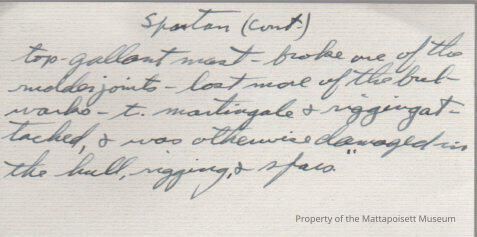 Spartan (cont.)
top-gallant mast - broke one of the
rudder joints - lost more of the bul-
warks - t. martingale & rigging at-
tached, & was otherwise damaged in
the hull, rigging, & spars."
Property of the Mattapoisett Museum